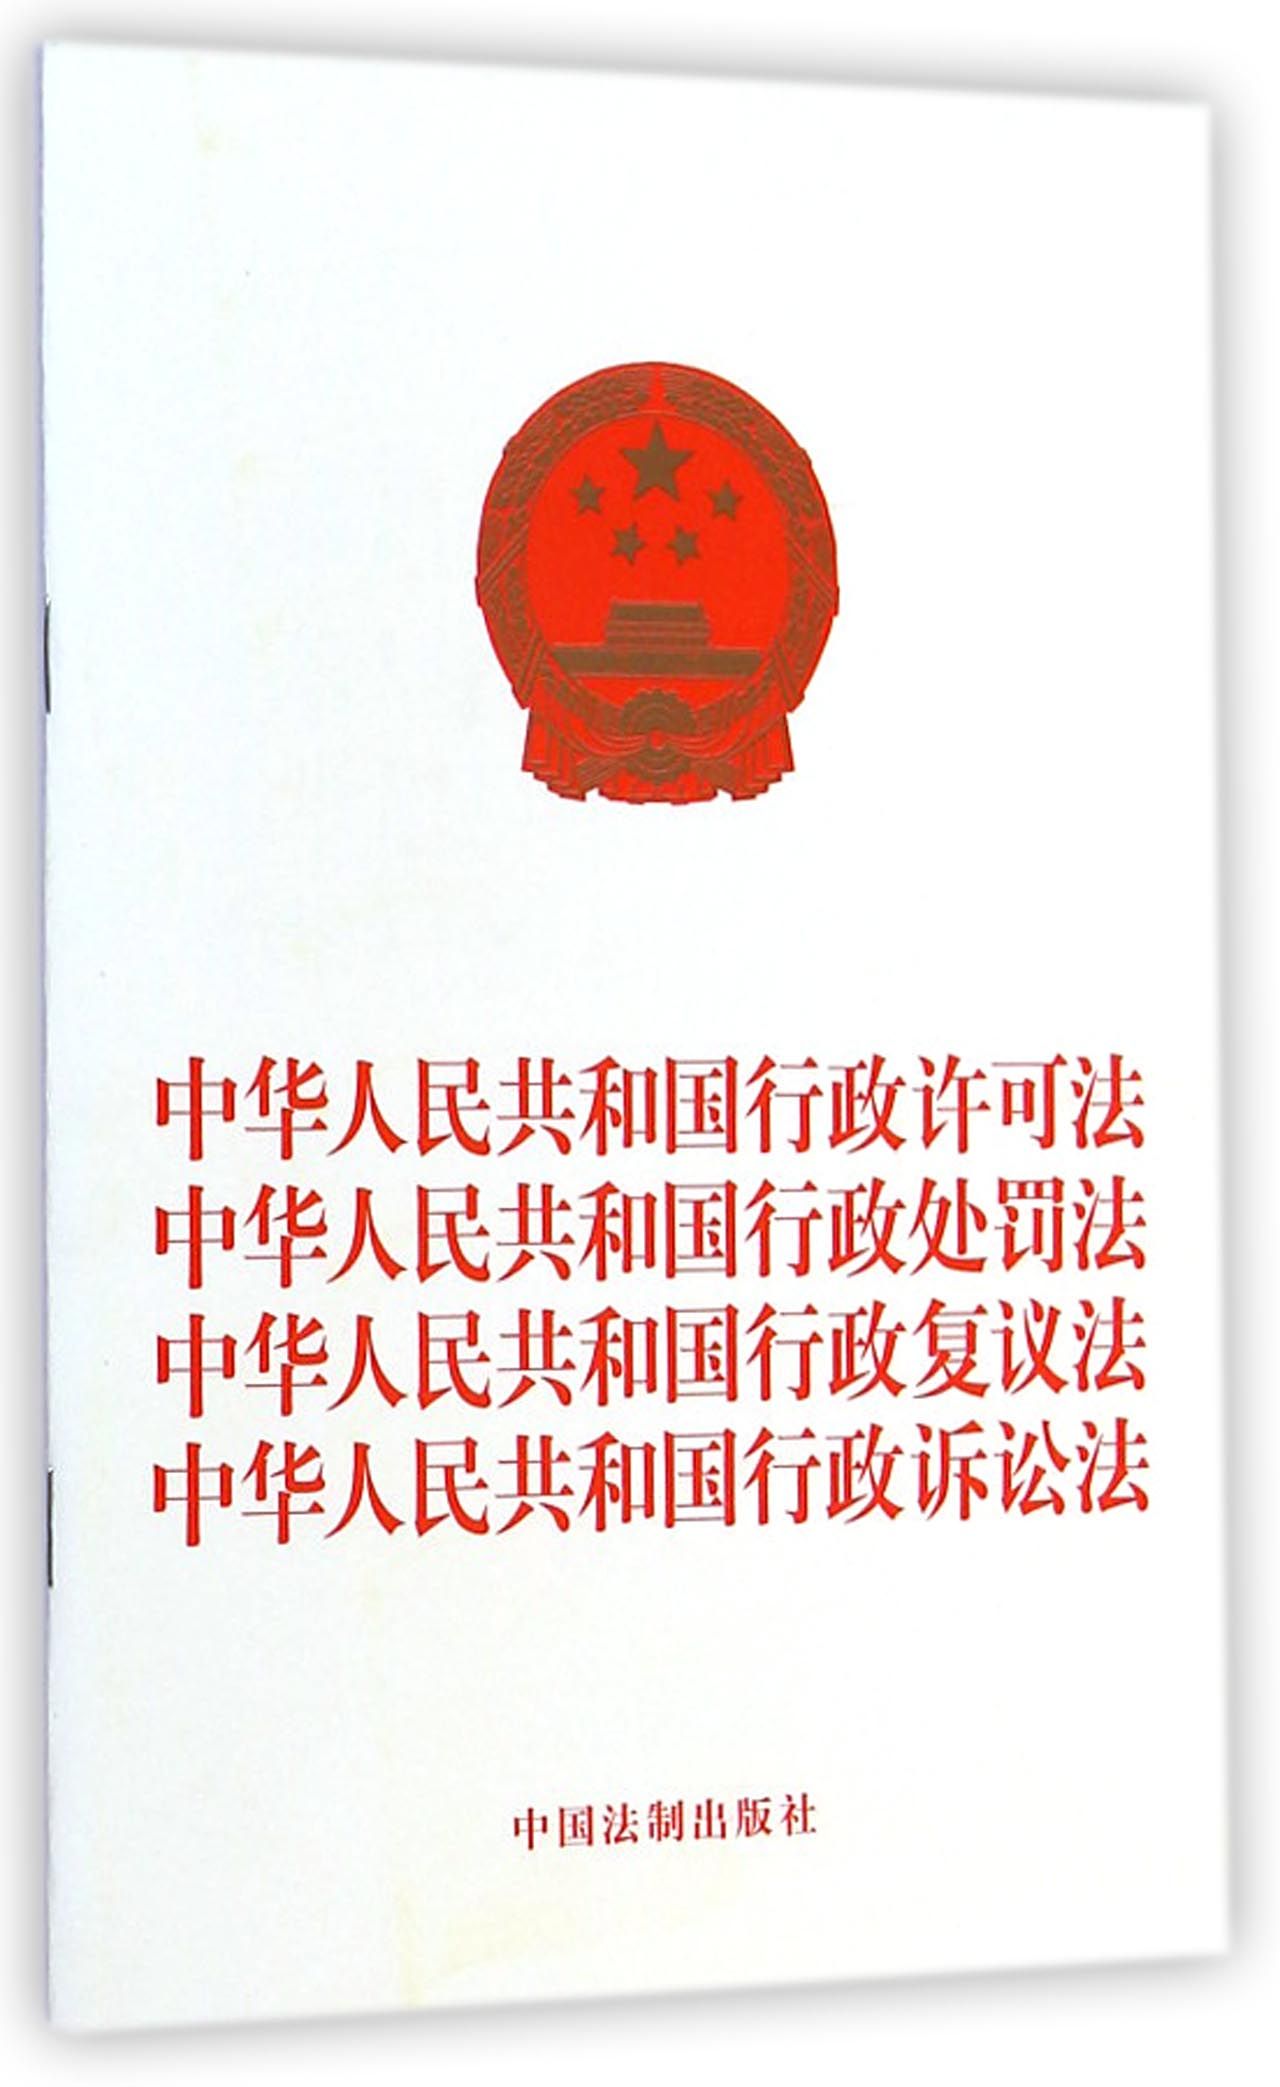 中华人民共和国行政许可法
中华人民共和国行政处罚法
中华人民共和国行政复议法
中华人民共和国行政诉讼法
中国法制出版社